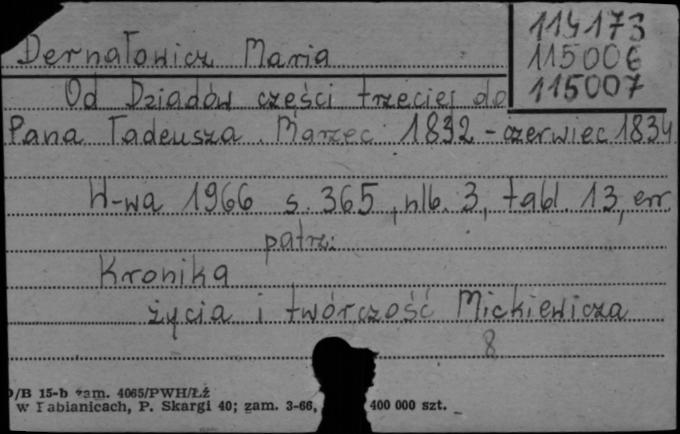 Dernałowicz Maria
114173
115006
115007
Od Dziadów części trzeciej do
Pana Tadeusza. Marzec 1832 - czerwiec 1834
W-wa 1966 s. 365, nlb. 3, tabl. 13, err.
patrz:
Kronika
życia i twórczość Mickiewicza
8
/B 15-b zam. 4065/PWH/Łź
w Pabianicach, P. Skargi 40; zam. 3-66, 400 000 szt.